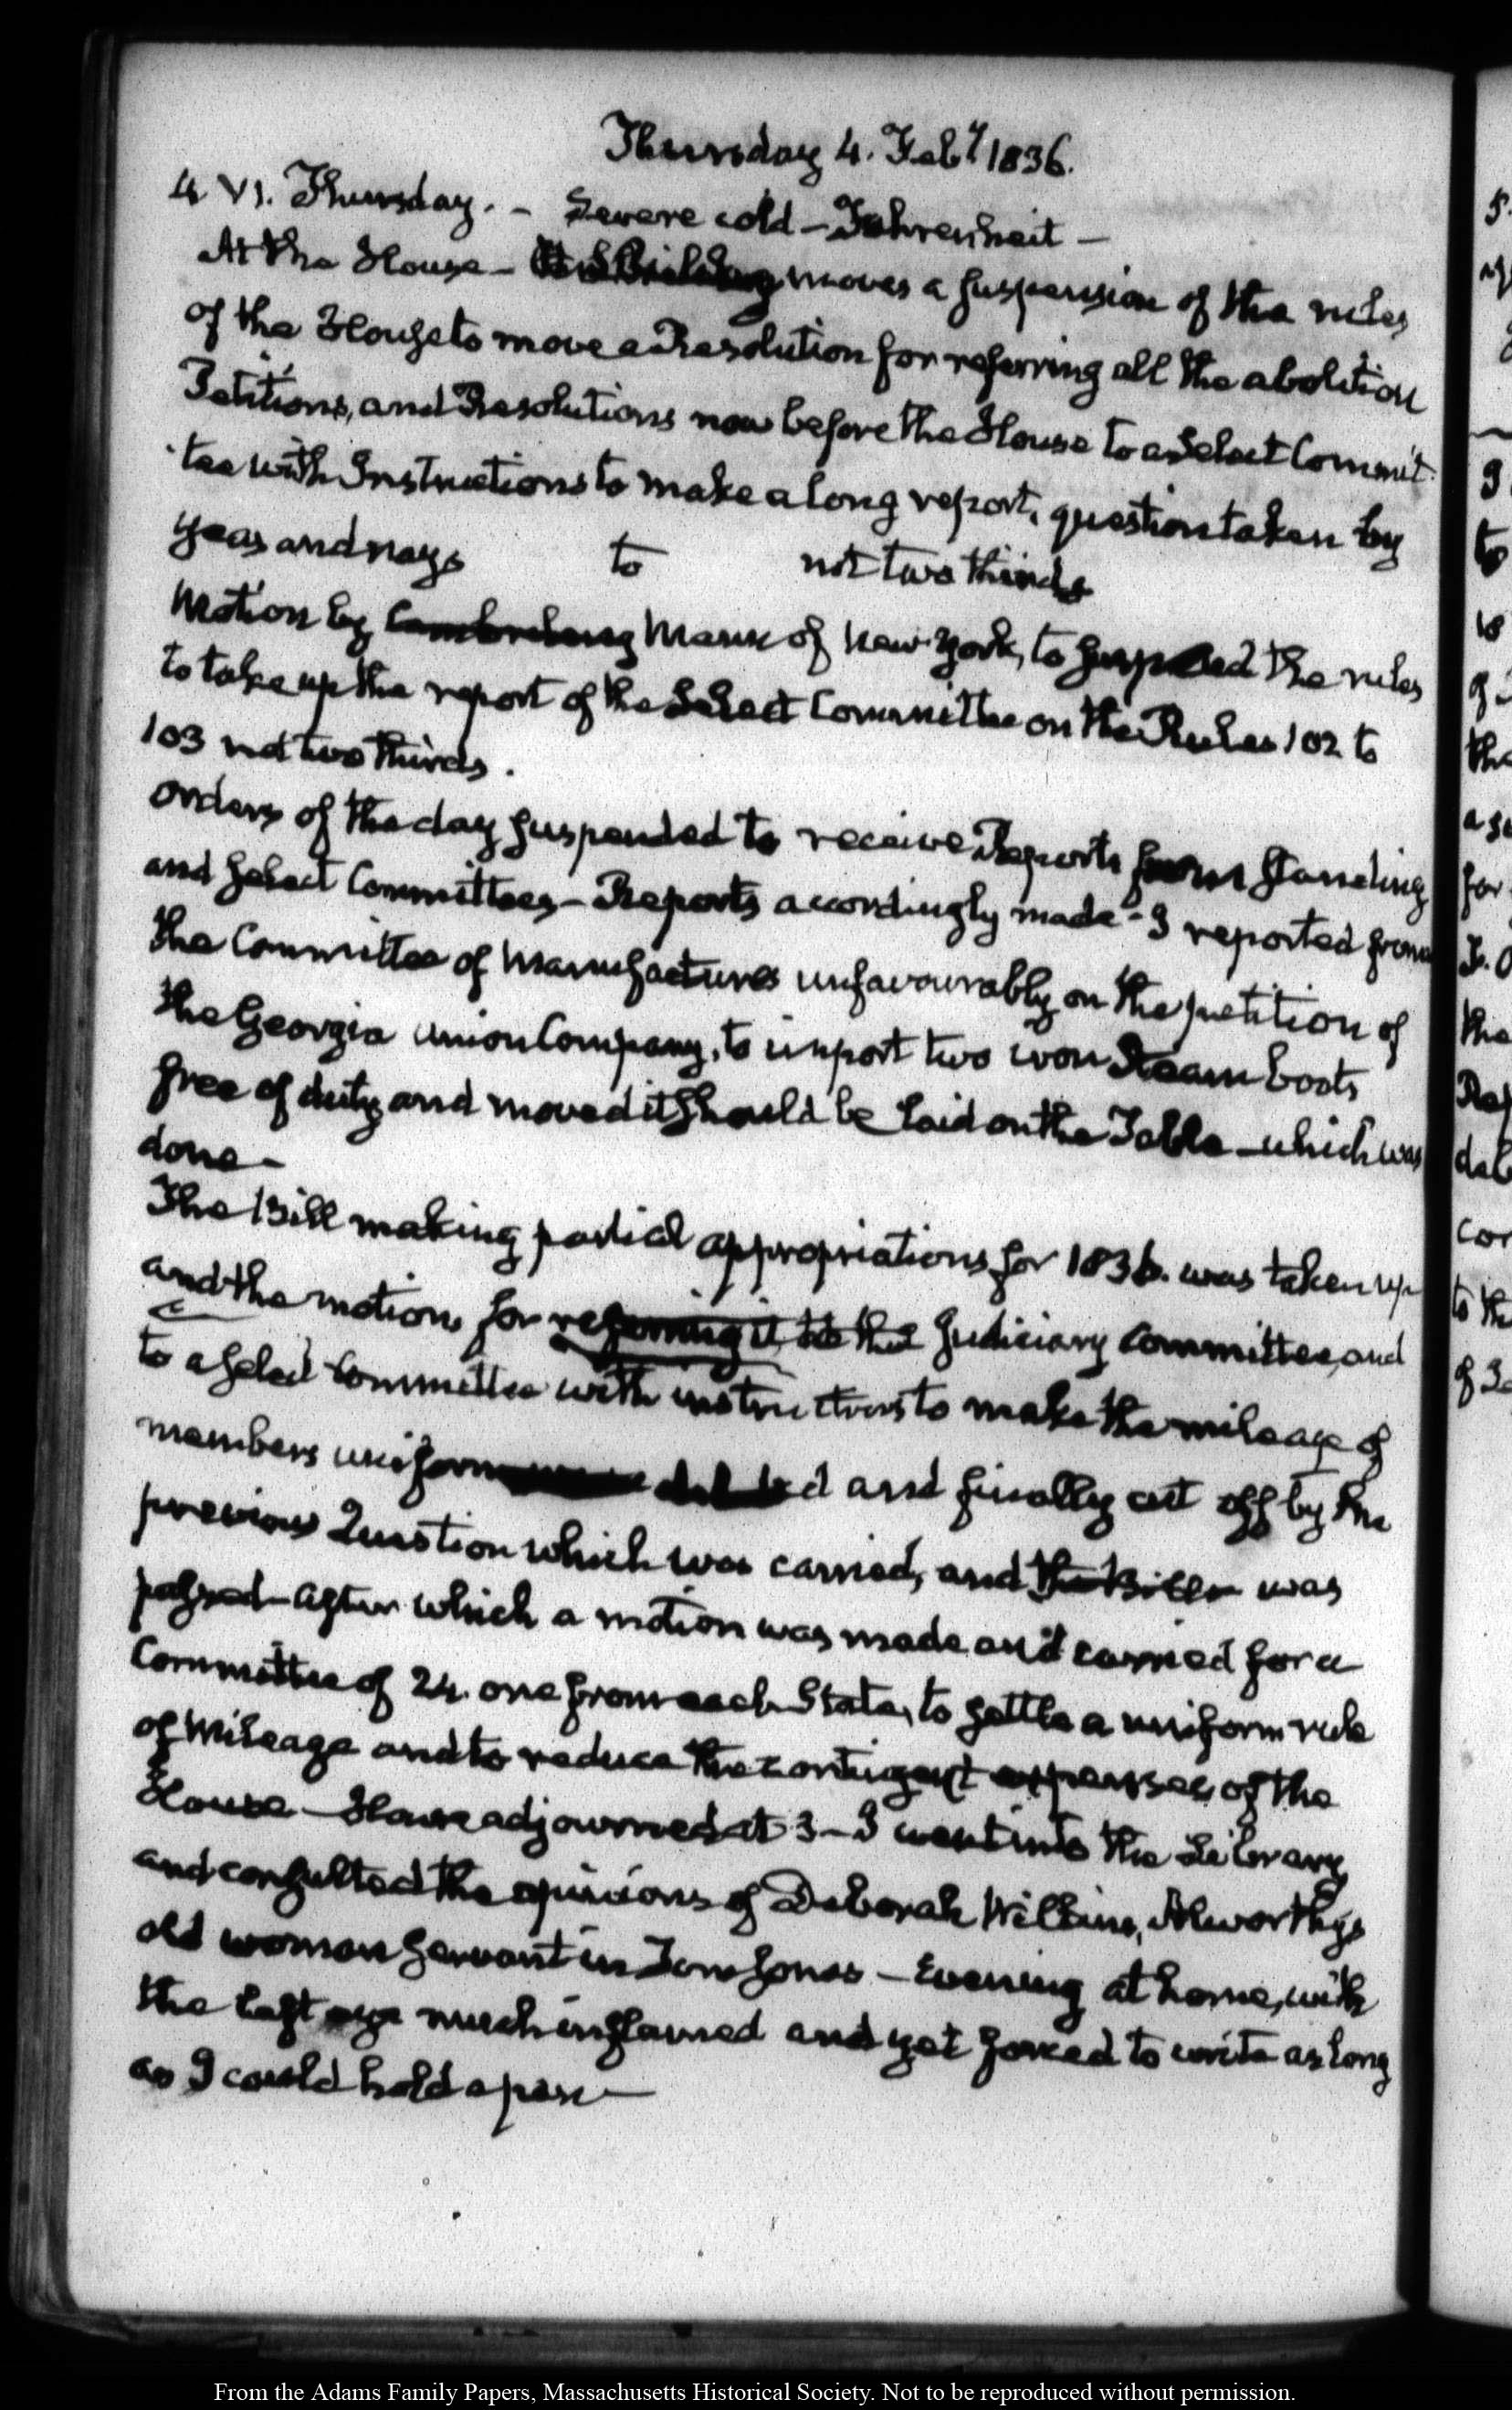 Thursday 4. Feby. 1836.
4. VI. Thursday. - Severe cold - Fahrenheit -
At the House - moves a suspension of the rules
of the House to move a Resolution for referring all the abolition
Petitions, and Resolutions now before the House to a Select Commit-
tee with Instructions to make a long report, question taken by
yeas and nays to not two thirds
Motion by Cambreleng Mann of New-York, to suspend the rules
to take up the report of the Select Committee on the Rules 102 to
103 not two thirds.
orders of the day suspended to receive Reports from Standing
and Select Committees - Reports accordingly made - I reported from
the Committee of Manufactures unfavourably on the petition of
the Georgia Union Company, to import two iron Steam boats
free of duty and moved it should be laid on the Table - which was
done -
The Bill making partial appropriations for 1836. was taken up
and the motions for referring it to the Judiciary Committee, and
to a select Committee with instructions to make the mileage of
members uniform and finally cut off by the
previous Question which was carried, and the Bill was
passed - after which a motion was made and carried for a
Committee of 24. one from each State, to settle a uniform rule
of Mileage and to reduce the contingent expenses of the
House - House adjourned at 3 - I went into the Library
and consulted the opinions of Deborah Wilkins, Alworthy's
old woman servant in Tom Jones - Evening at home, with
the left eye much inflamed and yet forced to write as long
as I could hold a pen -
From the Adams Family Papers, Massachusetts Historical Society. Not to be reproduced without permission.